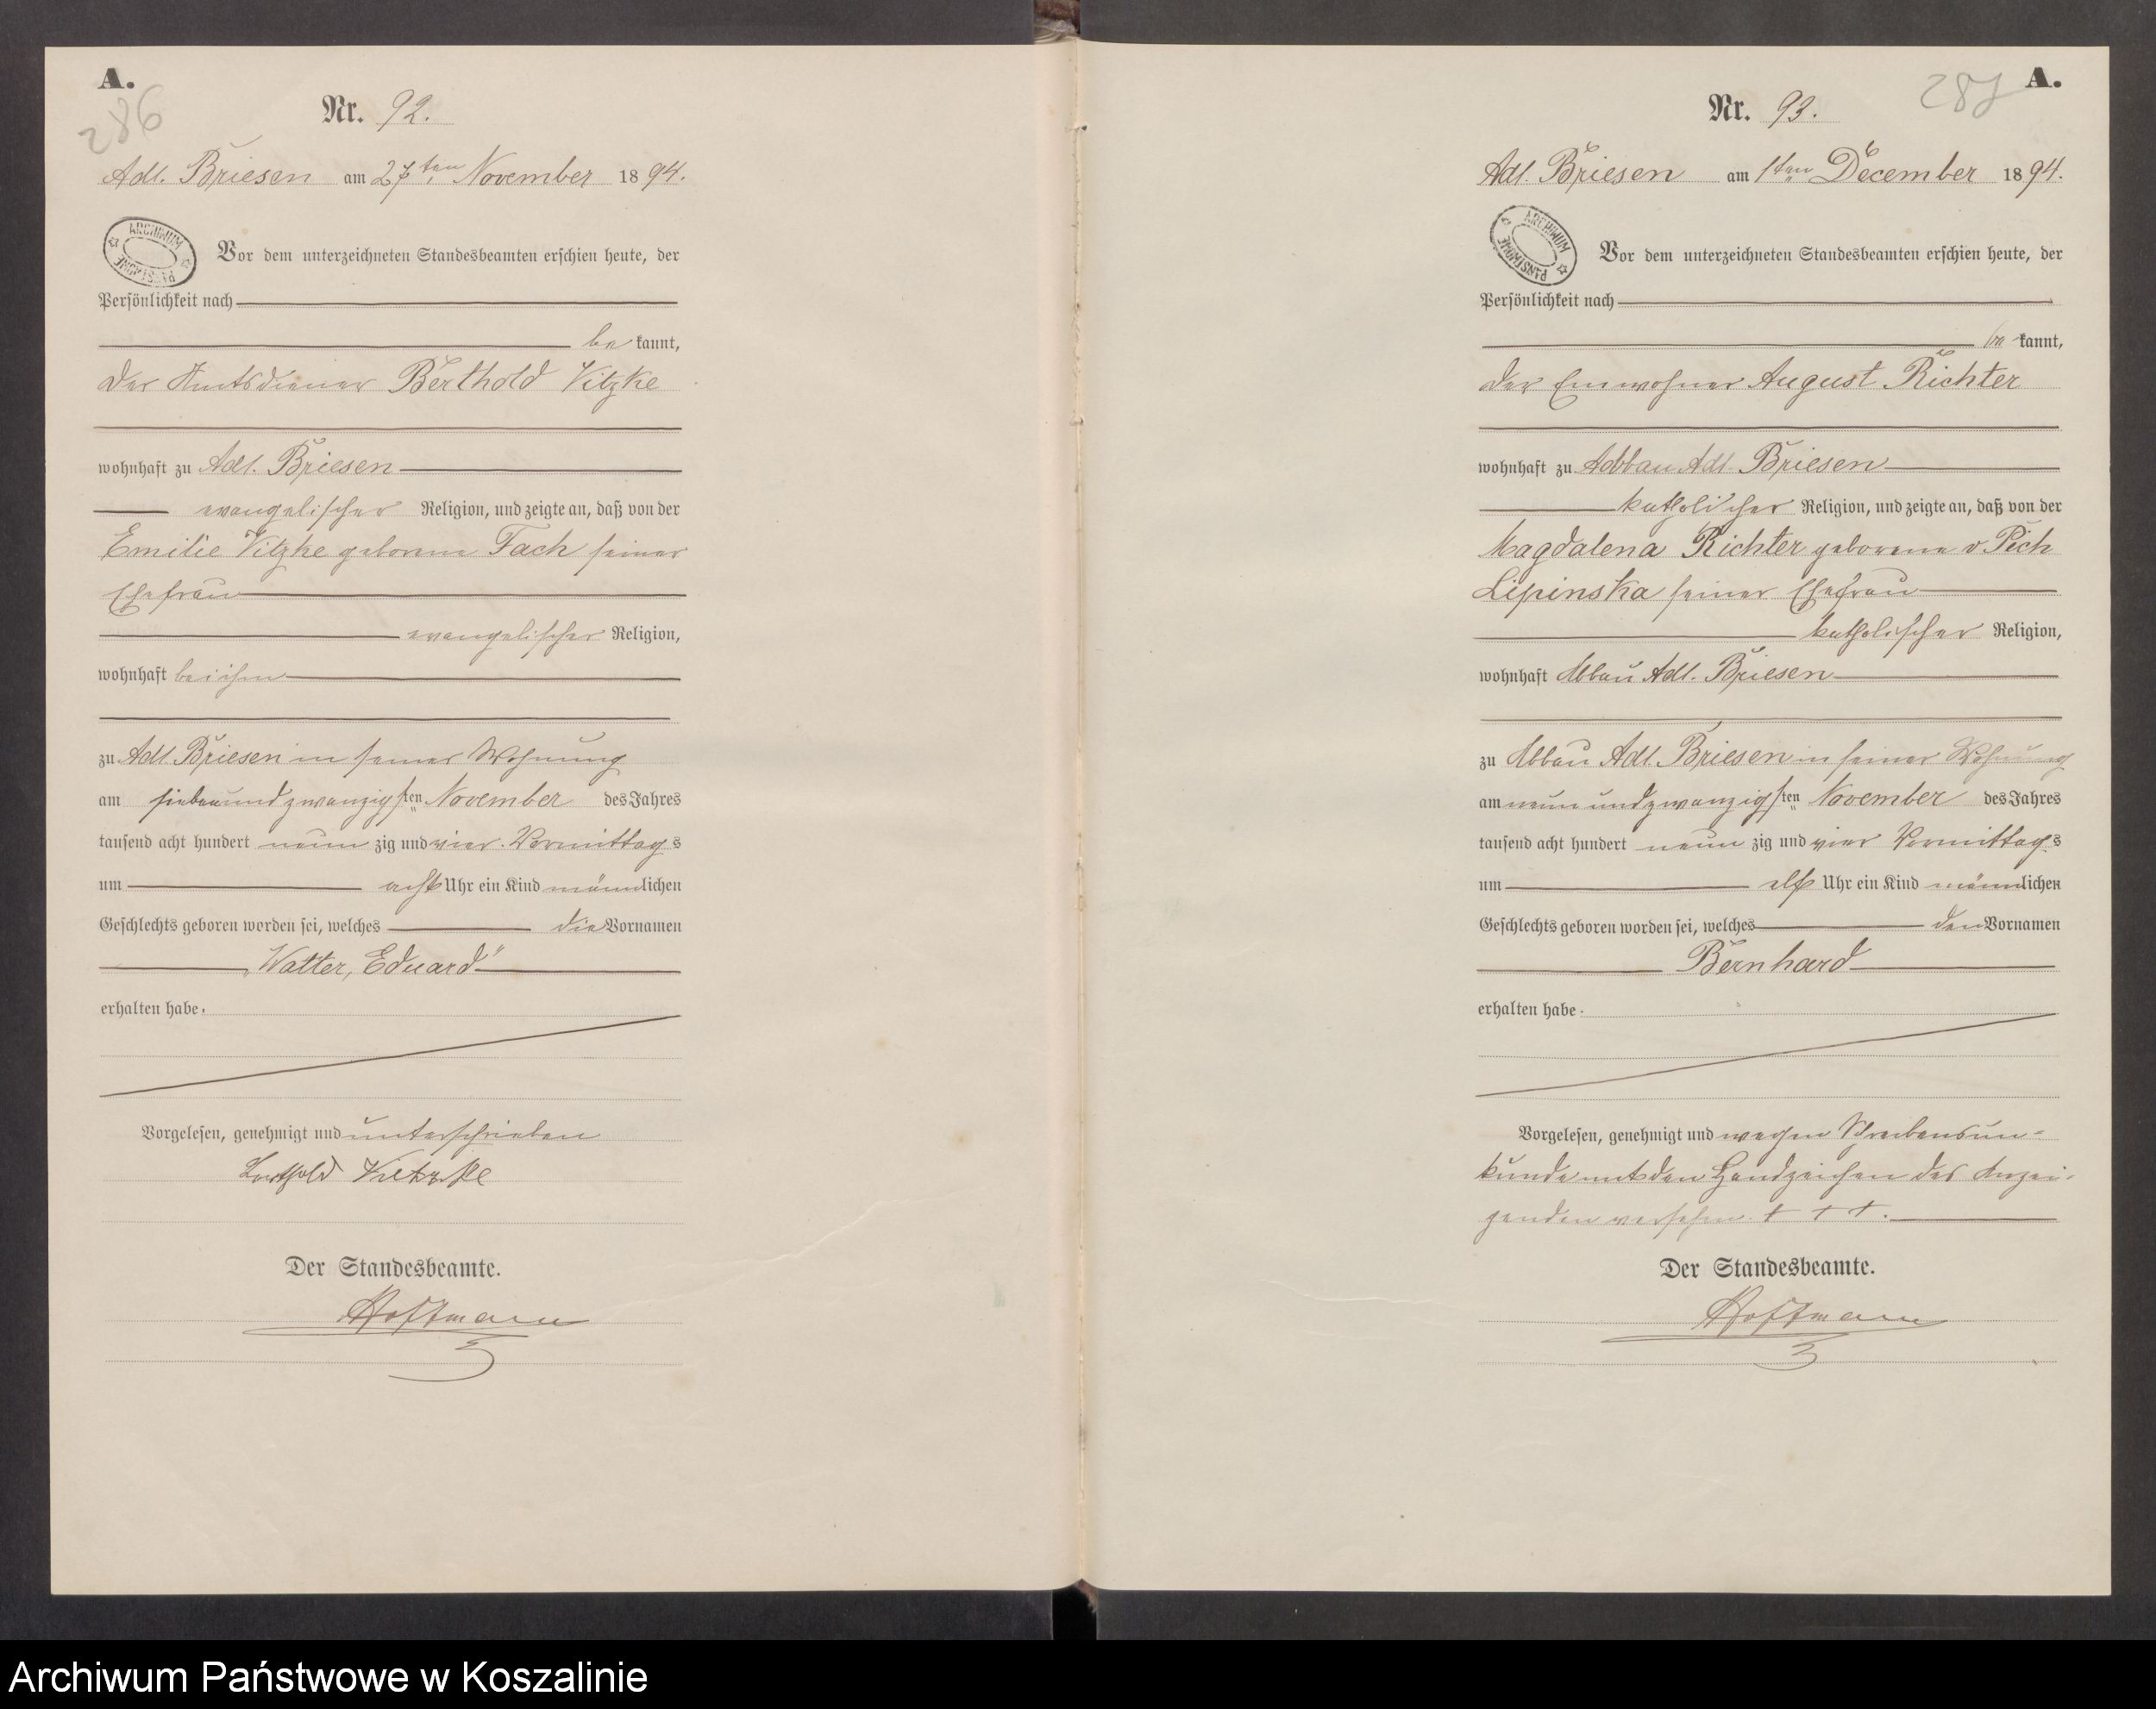 A.
286
Nr. 92.
Adl. Briesen am 27ten November 1894.
ARCHIWUM PAŃSTWOWE
Vor dem unterzeichneten Standesbeamten erschien heute, der
Persönlichkeit nach
be kannt,
der Amtsdiener Berthold Vitzke
wohnhaft zu Adl. Briesen
evangelischer Religion, und zeigte an, daß von der
Emilie Vitzke geborene Fach seiner
Ehefrau
evangelischer Religion,
wohnhaft bei ihm
zu Adl. Briesen in seiner Wohnung
am siebenundzwanzigsten November des Jahres
tausend acht hundert neun zig und vier Vormittags
um acht Uhr ein Kind männlichen
Geschlechts geboren worden sei, welches die Vornamen
„Walter, Eduard"
erhalten habe.
Vorgelesen, genehmigt und unterschrieben
Berthold Vietzke
Der Standesbeamte.
Hoffmann
287
A.
Nr. 93.
Adl. Briesen am 1ten December 1894.
ARCHIWUM PAŃSTWOWE
Vor dem unterzeichneten Standesbeamten erschien heute, der
Persönlichkeit nach
be kannt,
der Einwohner August Richter
wohnhaft zu Abbau Adl. Briesen
katholischer Religion, und zeigte an, daß von der
Magdalena Richter geborene v Pich
Lipinska seiner Ehefrau
katholischer Religion,
wohnhaft Abbau Adl. Briesen
zu Abbau Adl. Briesen in seiner Wohnung
am neunundzwanzigsten November des Jahres
tausend acht hundert neun zig und vier Vormittags
um elf Uhr ein Kind männlichen
Geschlechts geboren worden sei, welches den Vornamen
Bernhard
erhalten habe.
Vorgelesen, genehmigt und wegen Schreibensun-
kunde mit den Handzeichen des Anzei-
genden versehen. + + +.
Der Standesbeamte.
Hoffmann
Archiwum Państwowe w Koszalinie